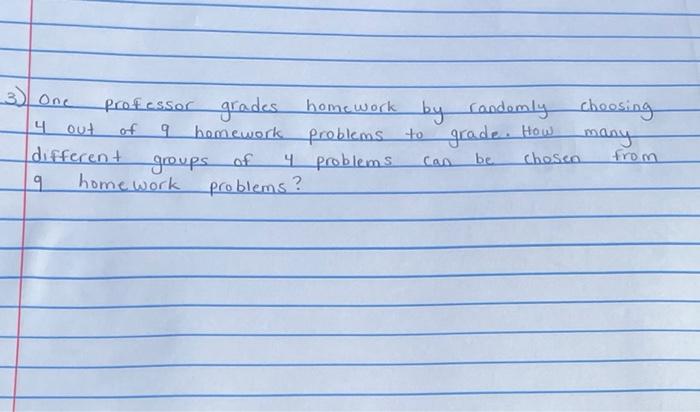 3) One professor grades homework by randomly choosing
4 out of 9 homework problems to grade. How many
different groups of 4 problems can be chosen from
9 homework problems?